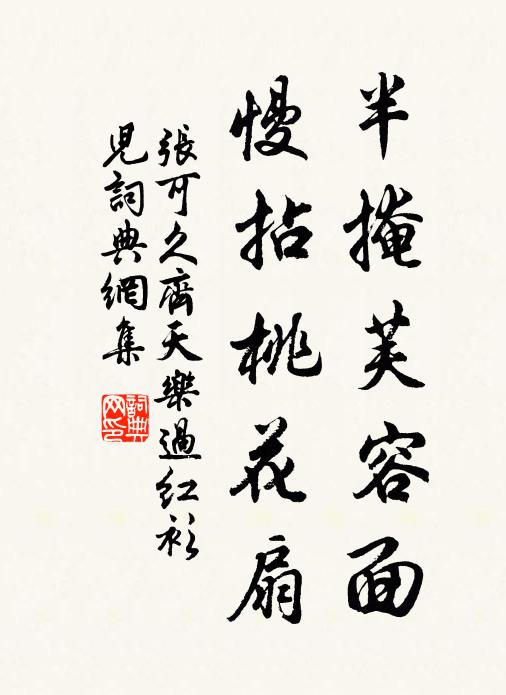 半掩芙容面
慢拈桃花扇
張可久齊天樂過紅衫
兒詞典網集
詞典網印